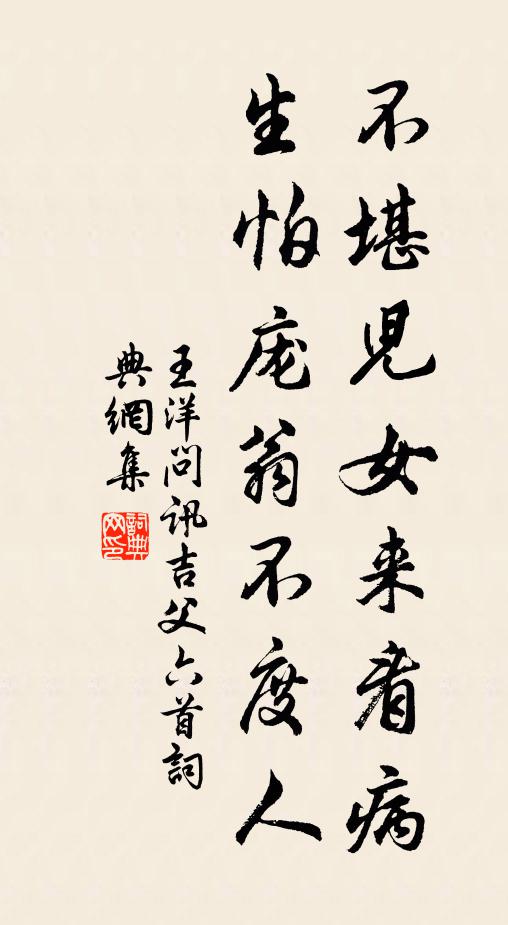 不堪児女来看病
生怕庞翁不度人
王洋問訊吉父六首詞
典網集
詞典网印